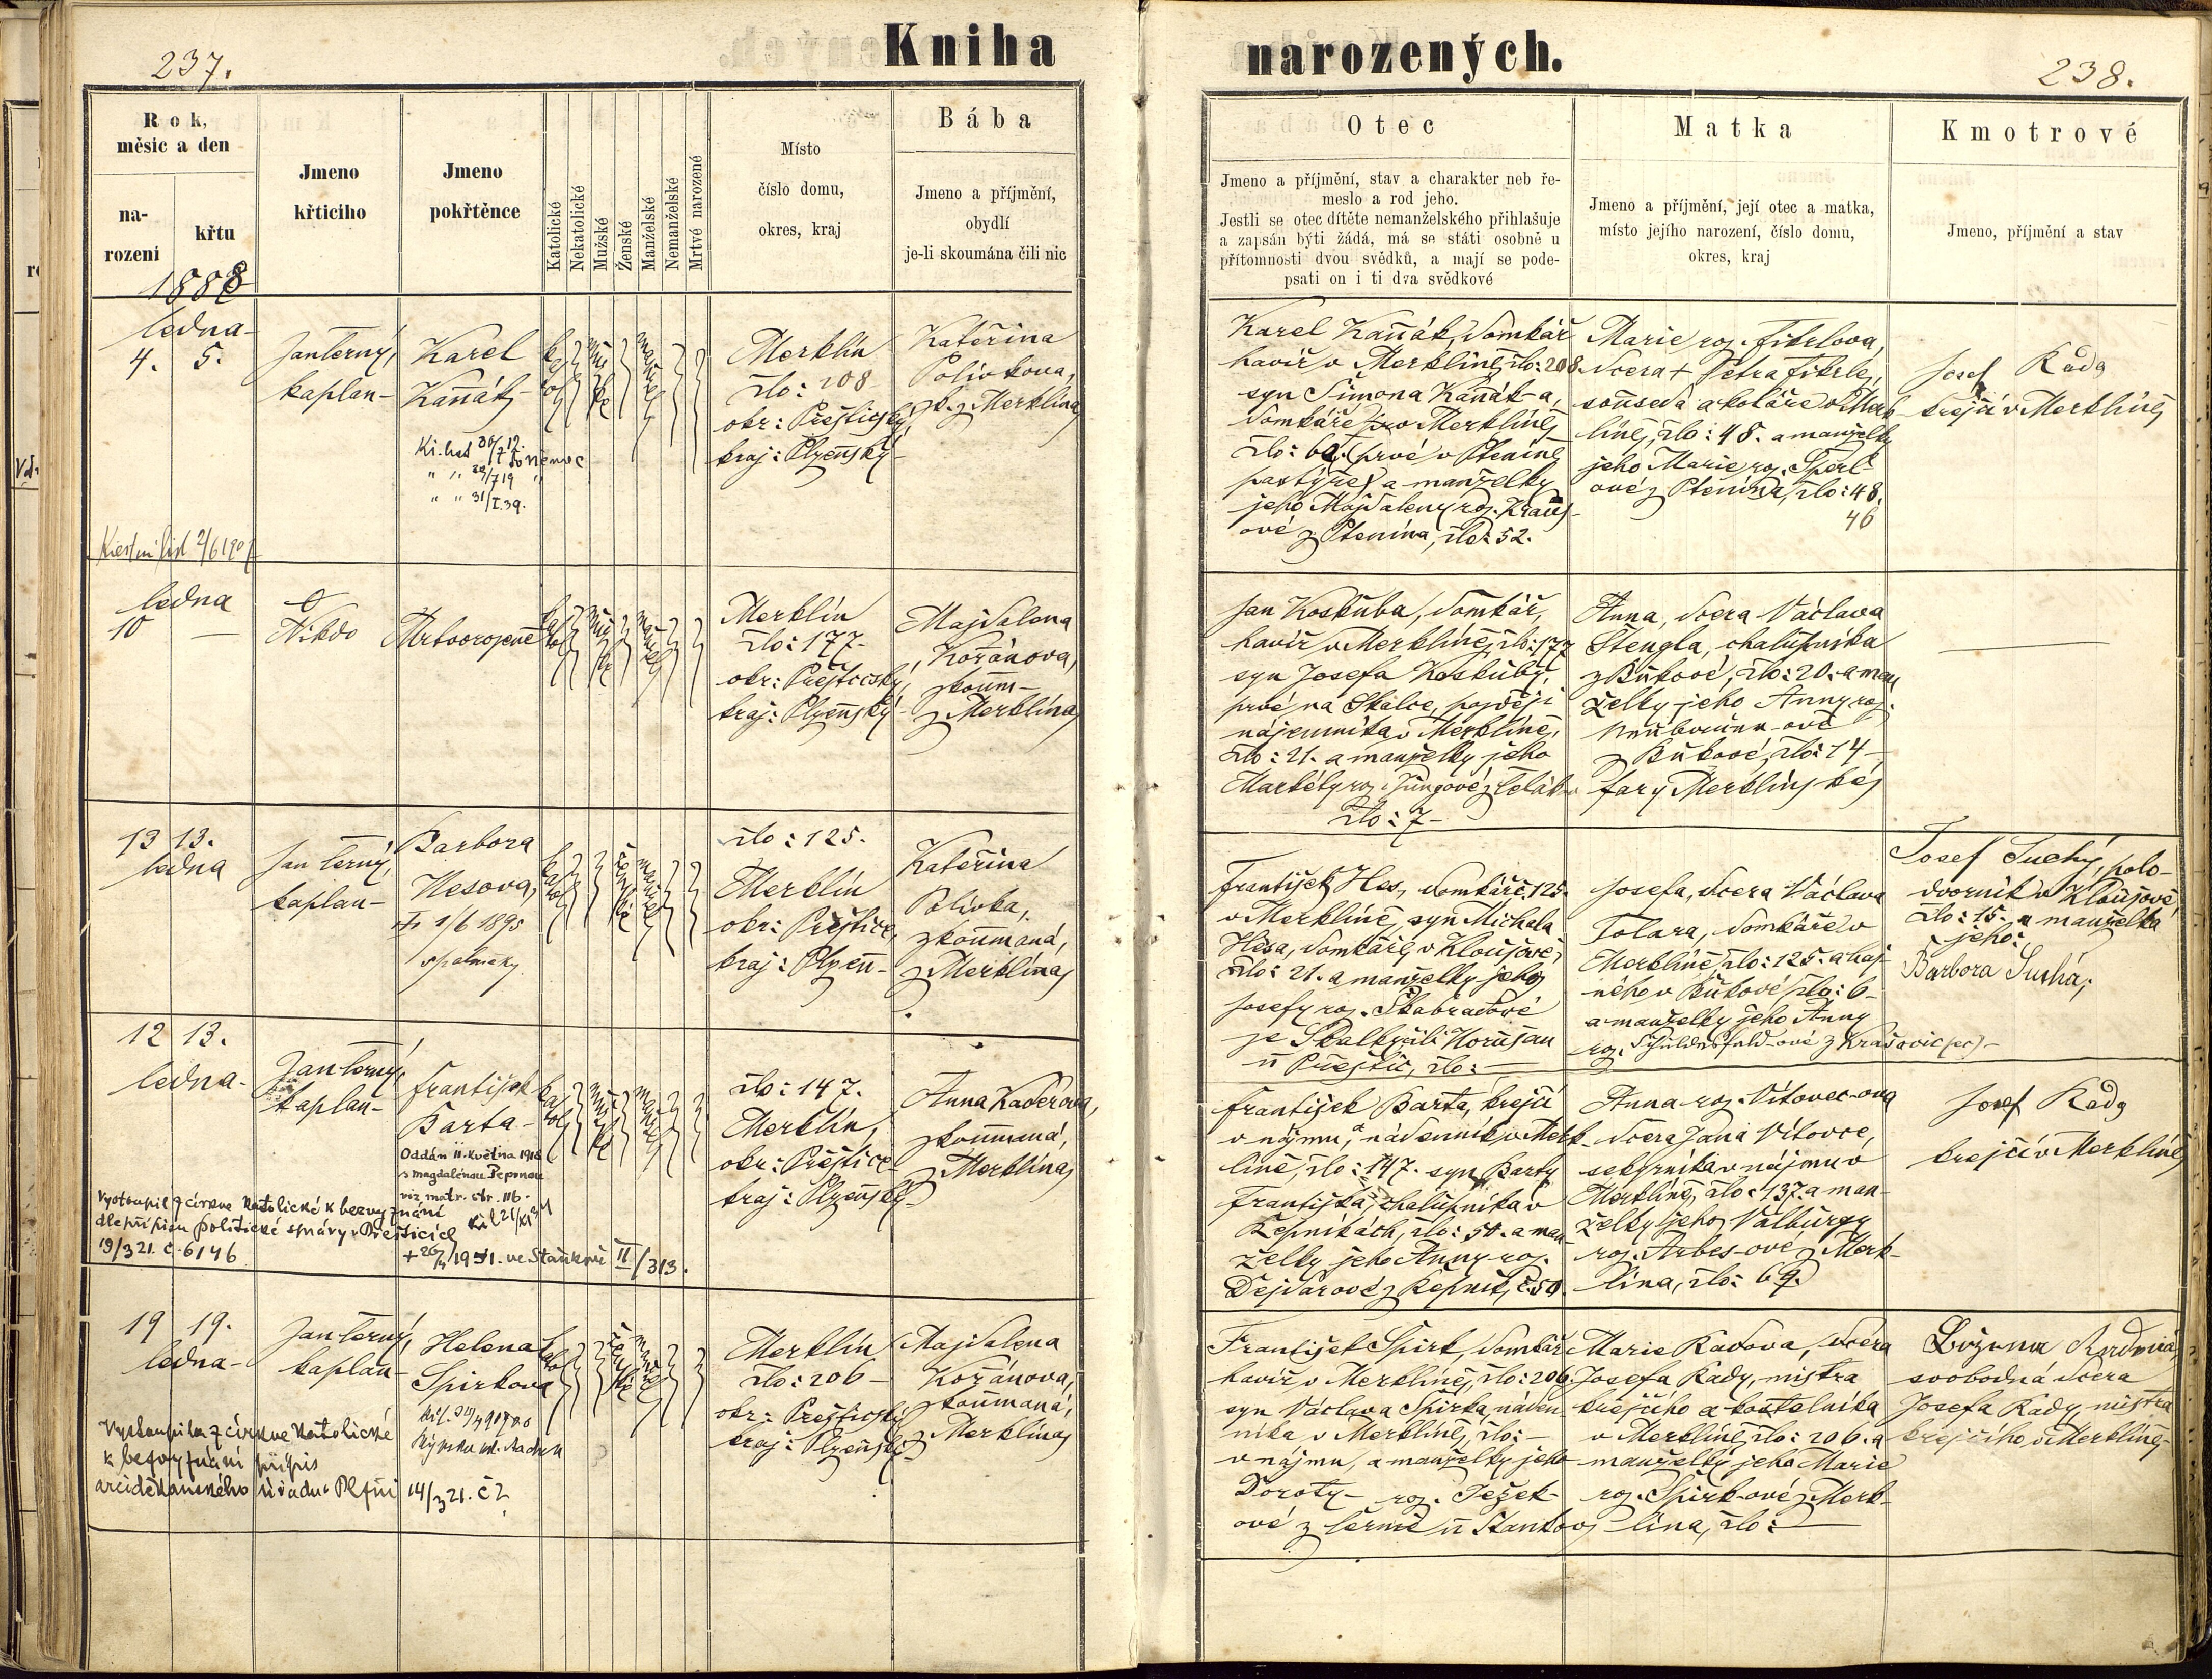 237.
Kniha
narozených.
238.
Rok,
měsíc a den
na-
rození
křtu
Jmeno
křticiho
Jmeno
pokřtěnce
Katolické
Nekatolické
Mužské
Ženské
Manželské
Nemanželské
Mrtvé narozené
Místo
číslo domu,
okres, kraj
Bába
Jmeno a příjmění,
obydlí
je-li skoumána čili nic
Otec
Jmeno a příjmění, stav a charakter neb ře-
meslo a rod jeho.
Jestli se otec dítěte nemanželského přihlašuje
a zapsán býti žádá, má se státi osobně u
přítomnosti dvou svědků, a mají se pode-
psati on i ti dva svědkové
Matka
Jmeno a příjmění, její otec a matka,
místo jejího narození, číslo domu,
okres, kraj
Kmotrové
Jmeno, příjmění a stav
1888
ledna
4. 5.
Jan Černý,
kaplan
Karel
Kaňák
Kř. list
31/I.39.
Křestní list 2/6 190
Merklín
člo: 208
okr: Přeštický,
kraj: Plzeňský
Kateřina
Polívkova,
zk. z Merklína
Karel Kaňák, domkář
havíř v Merklíně, člo: 208.
syn Šimona Kaňák-a,
domkáře v Merklíně
člo: 60. (prvé v Ptenině
pastýře) a manželky
jeho Majdaleny roz. Kraus-
ové z Ptenína, člo: 52.
Marie roz. Fikrlova,
dcera + Petra Fikrle,
souseda a koláře v Merk-
líně, člo: 48. a manželky
jeho Marie roz. Šperl-
ové z Ptenína, člo: 48.
46
Josef Rada
krejčí v Merklíně
ledna
10 —
Nikdo
Mrtvorozené
Merklín
člo: 177
okr: Přeštický,
kraj: Plzeňský
Majdalena
Kořánova,
zkoum-
z Merklína
Jan Koskuba, domkář,
havíř v Merklíně, člo: 177
syn Josefa Koskuby,
prvé na Skalce, později
nájemníka v Merklíně,
člo: 21. a manželky jeho
Markéty roz. Jungové z
člo: 7
Anna, dcera Václava
Štengla, chalupníka
z Bukové, člo: 20. a man
želky jeho Anny roz.
z Bukové, člo: 14
fary Merklínské
13 13.
ledna
Jan Černý,
kaplan
Barbora
Hesova,
+ 1/6 1895
člo: 125.
Merklín
okr: Přeštice,
kraj: Plzeň
Kateřina
Polívka,
zkoumaná,
z Merklína
František Hes, domkář č. 125.
v Merklíně, syn Michala
Hesa, domkáře v Kloušově
člo: 21. a manželky jeho
Josefy roz. Škabradové
ze Skalky čili Horušan
u Přeštic, člo: —
Josefa, dcera Václava
Tolara, domkáře v
Merklíně, člo: 125. a haj-
ného v Bukové, člo: 6
a manželky jeho Anny
Josef Suchý, polo-
dvorník v Kloušově
člo: 15. a manželka
jeho:
Barbora Suchá,
12 13.
ledna
Jan Černý,
kaplan
František
Barta
Oddán 11. května 1918
s Magdalénou Peponou
viz matr. str. 116.
Vystoupil z církve katolické k bezvyznání
dle přípisu politické správy v Přešticích
19/3 21. č. 6146
ve Staňkově II/313.
člo: 147.
Merklín,
okr: Přeštice
kraj: Plzeňský
Anna Kaderova,
zkoumaná,
z Merklína
František Barta, krejčí
v nájmu, a nádenník v Merk-
líně, člo: 147. syn Barty
Františka, chalupníka v
Řepníkách, člo: 50. a man
želky jeho Anny roz.
Dejdarové z Řepník, č. 50.
Anna roz. Vítovec-ova
dcera Jana Vítovce,
sekerníka v nájmu v
Merklíně, člo: 137. a man-
želky jeho Valburgy
roz. Arbes-ové z Merk-
lína, člo: 69.
Josef Rada
krejčí v Merklíně
19 19.
ledna
Jan Černý,
kaplan
Helena
Špirkova
Vystoupila z církve katolické
k bezvyznání přípis
arciděkanského úřadu v Plzni 14/3 21. č 2
Merklín
člo: 206
okr: Přeštický
kraj: Plzeňský
Majdalena
Kořánova,
zkoumaná,
z Merklína
František Špirk, domkář
havíř v Merklíně, člo: 206.
syn Václava Špirka náden-
níka v Merklíně, člo: —
v nájmu, a manželky jeho
Doroty roz. Ježek-
ové z Černé u Stankov
Marie Radova, dcera
Josefa Rady, mistra
krejčího a kostelníka
v Merklíně, člo: 206. a
manželky jeho Marie
roz. Špirk-ové z Merk-
lína, člo: —
Božena Radová,
svobodná dcera
Josefa Rady mistra
krejčího v Merklíně